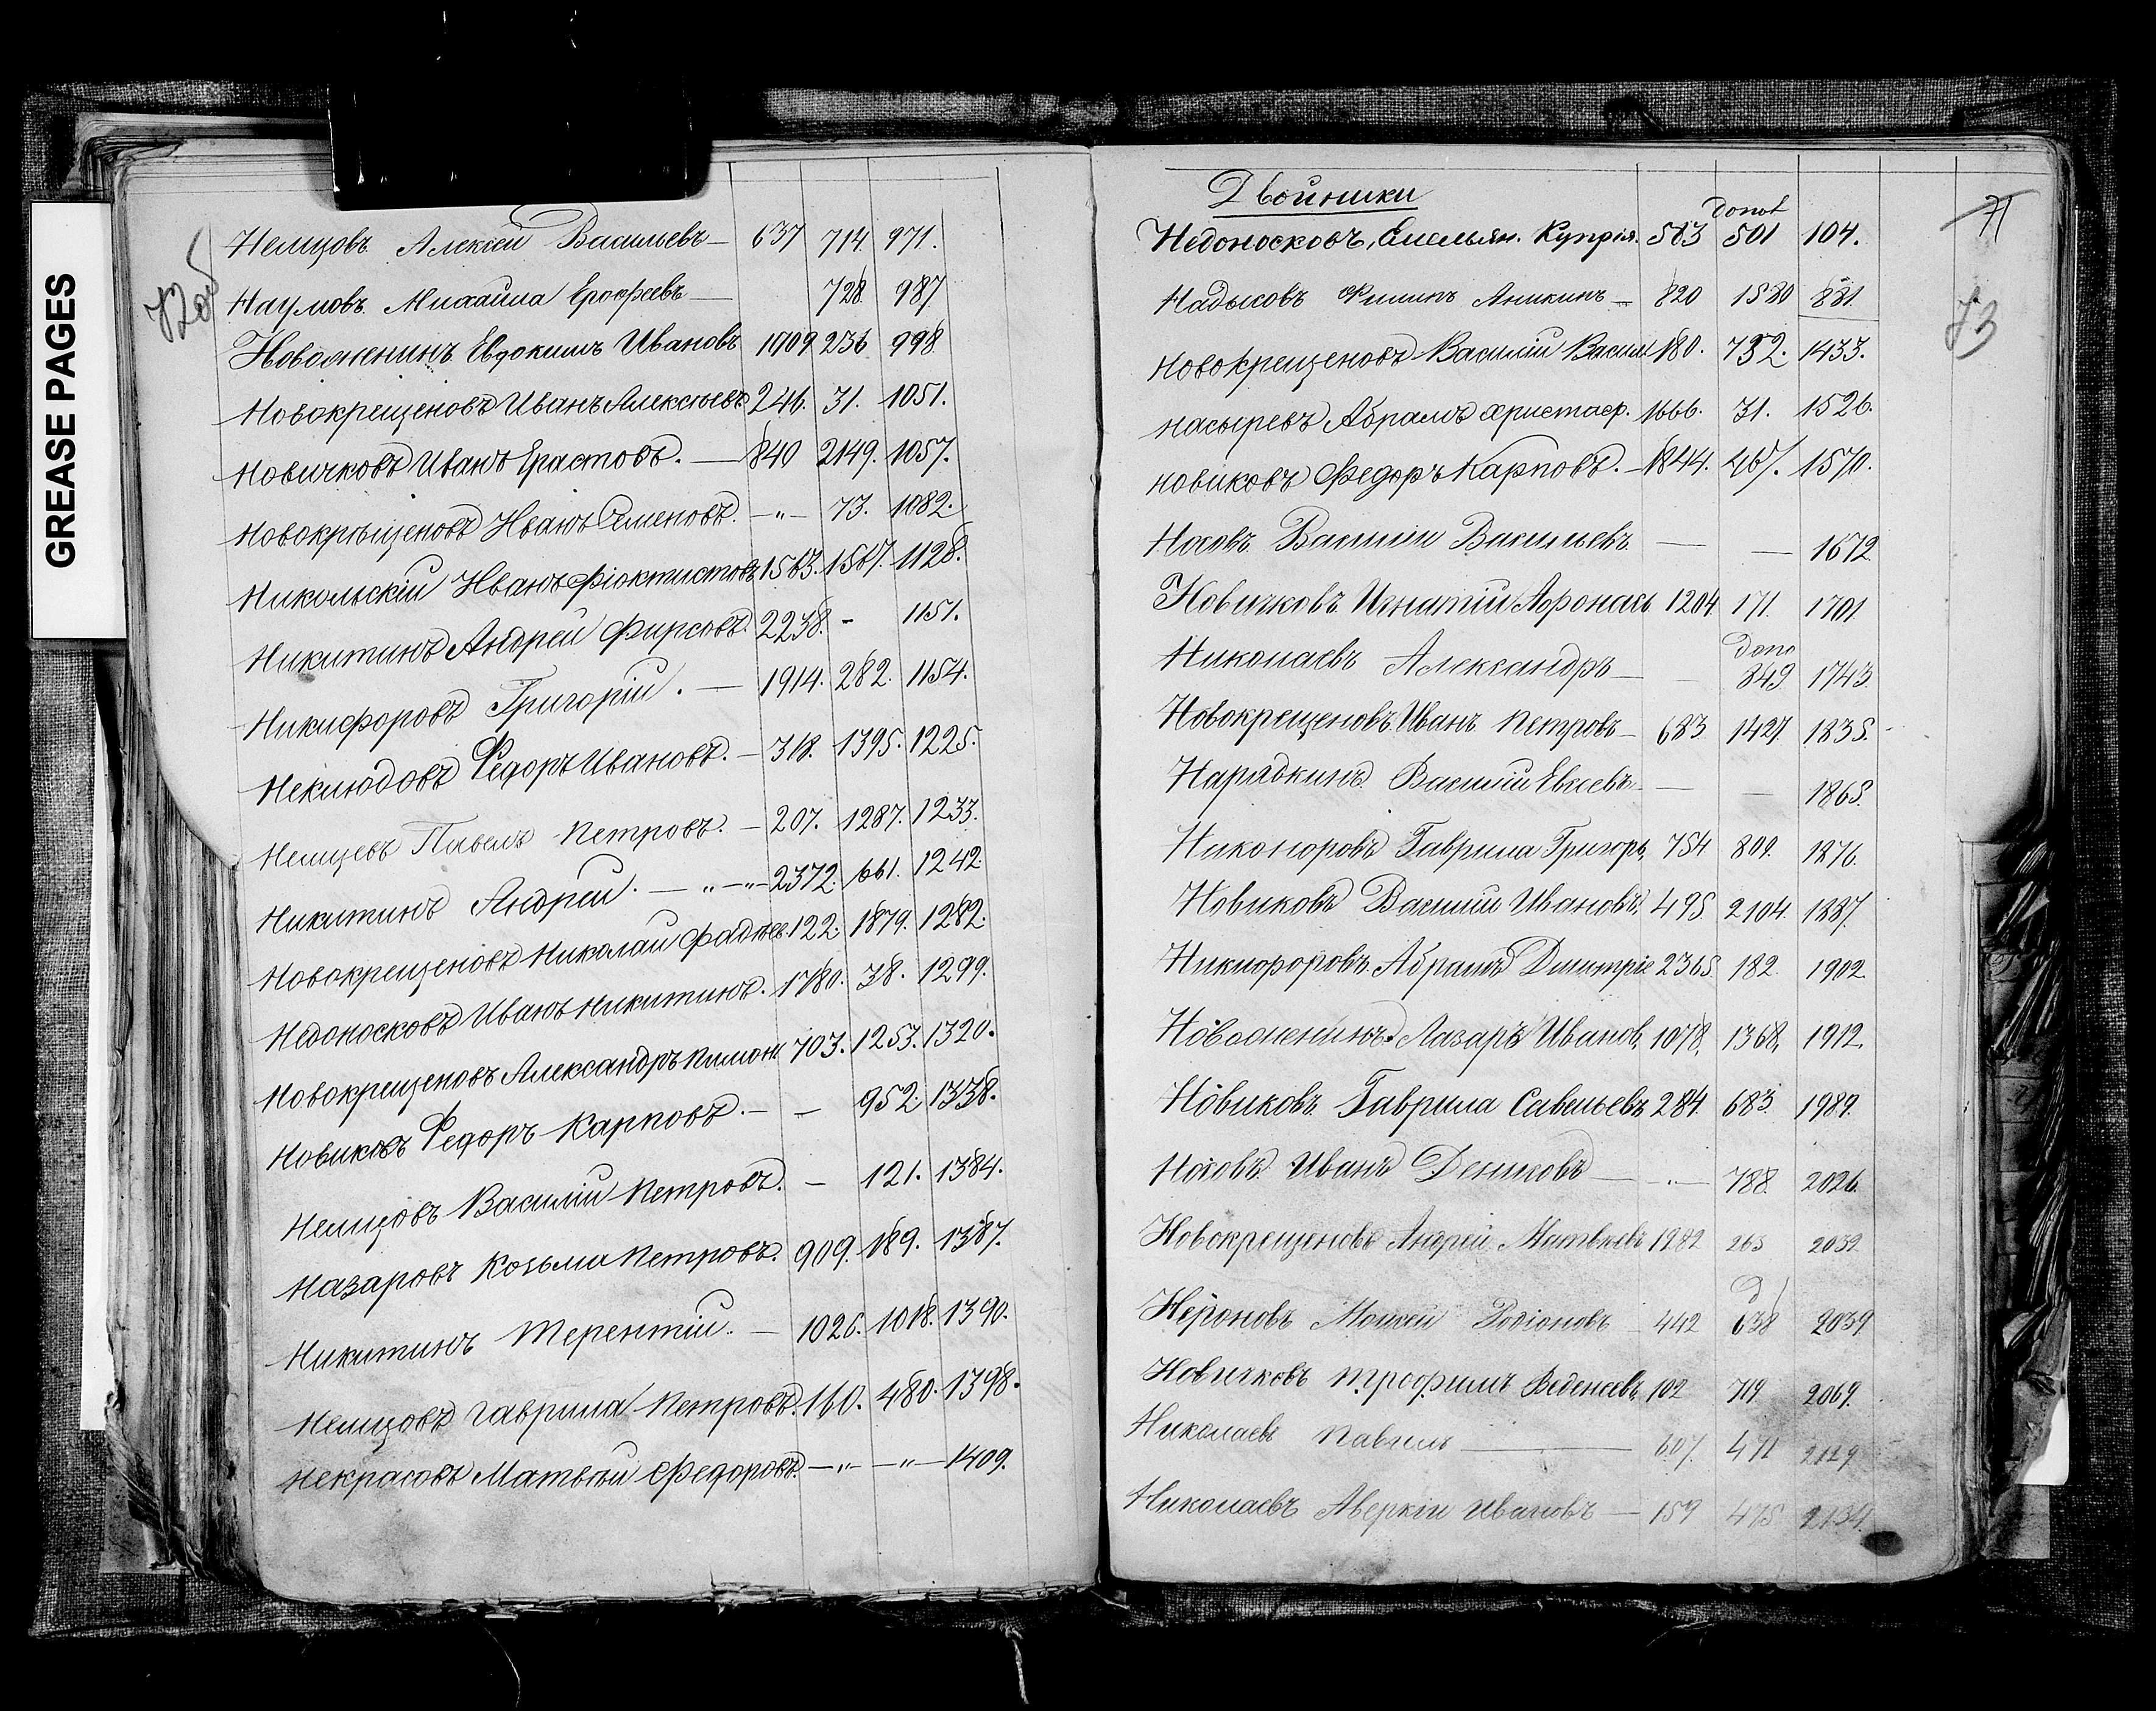 GREASE PAGES
72об
Немцовъ Алексеи Васильевъ — 637 714 971.
Наумовъ Михаила Ерофеевъ — 728 987
Новоженинъ Евдокимъ Ивановъ 1709 236 998
Новокрещеновъ Иванъ Алексѣевъ 246. 31. 1051.
Новичковъ Иванъ Ерастовъ. — 840 2149. 1057.
Новокрѣщеновъ Иванъ Семеновъ. —„— 73. 1082.
Никольскіи Иванъ Фіоктистовъ 1563. 1567. 1128.
Никитинъ Андреи Фирсовъ. 2238. - 1151.
Никифоровъ Григоріи. — 1914. 282. 1154.
Неклюдовъ Федоръ Ивановъ. — 318. 1395. 1225.
Немцевъ Павелъ Петровъ. — 207. 1287. 1233.
Никитинъ Андреи. — „ — „ — 2372. 661. 1242.
Новокрещеновъ Николаи Фадѣев. 122. 1879. 1282.
Недоносковъ Иванъ Никитинъ. 1780. 38. 1299.
Новокрещеновъ Александръ Пимон 703. 1253. 1320.
Новиковъ Федоръ Карповъ. — — 952. 1338.
Немцовъ Василіи Петровъ. — 121. 1384.
Назаровъ Козьма Петровъ. 909. 189. 1387.
Никитинъ Терентіи. — 1026. 1018. 1390.
Немцовъ Гаврила Петровъ. 160. 480. 1398.
Некрасовъ Матвѣи Федоровъ. —„— —„— 1409.
Двойники
71
73
Недоносковъ, Емельян. Купрія. 583 501 104.
Надысовъ Филипъ Аникинъ — 820 1580 881.
Новокрещеновъ Василіи Васил 180. 732. 1433.
Насыревъ Абрамъ Христаф. 1666. 31. 1526.
Новиковъ Федоръ Карповъ. — 1844. 467. 1570.
Носовъ Василіи Васильевъ — — 1672
Новичковъ Игнатіи Афонась 1204 171. 1701.
допо
Николаевъ Александръ — — 849 1743.
Новокрещеновъ Иванъ Петровъ — 683 1427. 1835.
Нарядкинъ Василіи Евсеевъ — — 1865.
Никоноровъ Гаврила Григорь, 754 809. 1876.
Новиковъ Василіи Ивановъ, 495 2104. 1887.
Никифоровъ Абрамъ Дмитріе 2365. 182 1902.
Новоженинъ Лазаръ Иванов, 1078, 1368, 1912.
Новиковъ Гаврила Савельевъ 284. 683. 1989.
Носовъ Иванъ Денисовъ — „ — 788. 2026.
Новокрещеновъ Андреи Матвѣевъ 1282 265 2032
Нероновъ Моисеи Родіоновъ — 442 638 2039
Новичковъ Трофимъ Веденеевъ 102 719 2069.
Николаевъ Павелъ — 607. 471 2129
Николаевъ Аверкіи Ивановъ — 159 475 2134.